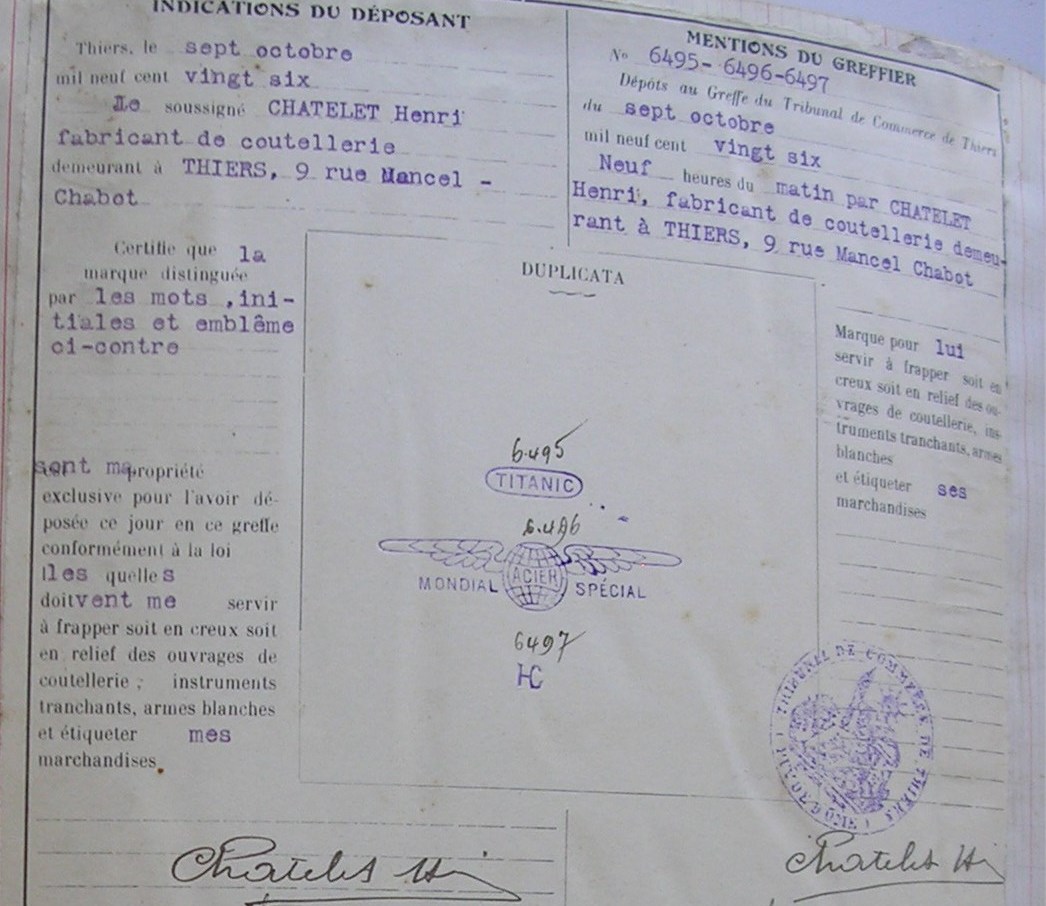 INDICATIONS DU DÉPOSANT
Thiers, le sept octobre
mil neuf cent vingt six
Je soussigné CHATELET Henri
fabricant de coutellerie
demeurant à THIERS, 9 rue Mancel -
Chabot
Certifie que la
marque distinguée
par les mots ,ini-
tiales et emblême
ci-contre
sont ma propriété
exclusive pour l'avoir dé-
posée ce jour en ce greffe
conformément à la loi
les quelles
doivent me servir
à frapper soit en creux soit
en relief des ouvrages de
coutellerie ; instruments
tranchants, armes blanches
et étiqueter mes
marchandises.
MENTIONS DU GREFFIER
No 6495- 6496-6497
Dépôts au Greffe du Tribunal de Commerce de Thiers
du sept octobre
mil neuf cent vingt six
Neuf heures du matin par CHATELET
Henri, fabricant de coutellerie demeu-
rant à THIERS, 9 rue Mancel Chabot
DUPLICATA
6.495
TITANIC
6.496
ACIER
MONDIAL SPÉCIAL
6497
HC
Marque pour lui
servir à frapper soit en
creux soit en relief des ou-
vrages de coutellerie, ins-
truments tranchants, armes
blanches
et étiqueter ses
marchandises
TRIBUNAL DE COMMERCE DE THIERS
(PUY-DE-DÔME)
Chatelet H
Chatelet H